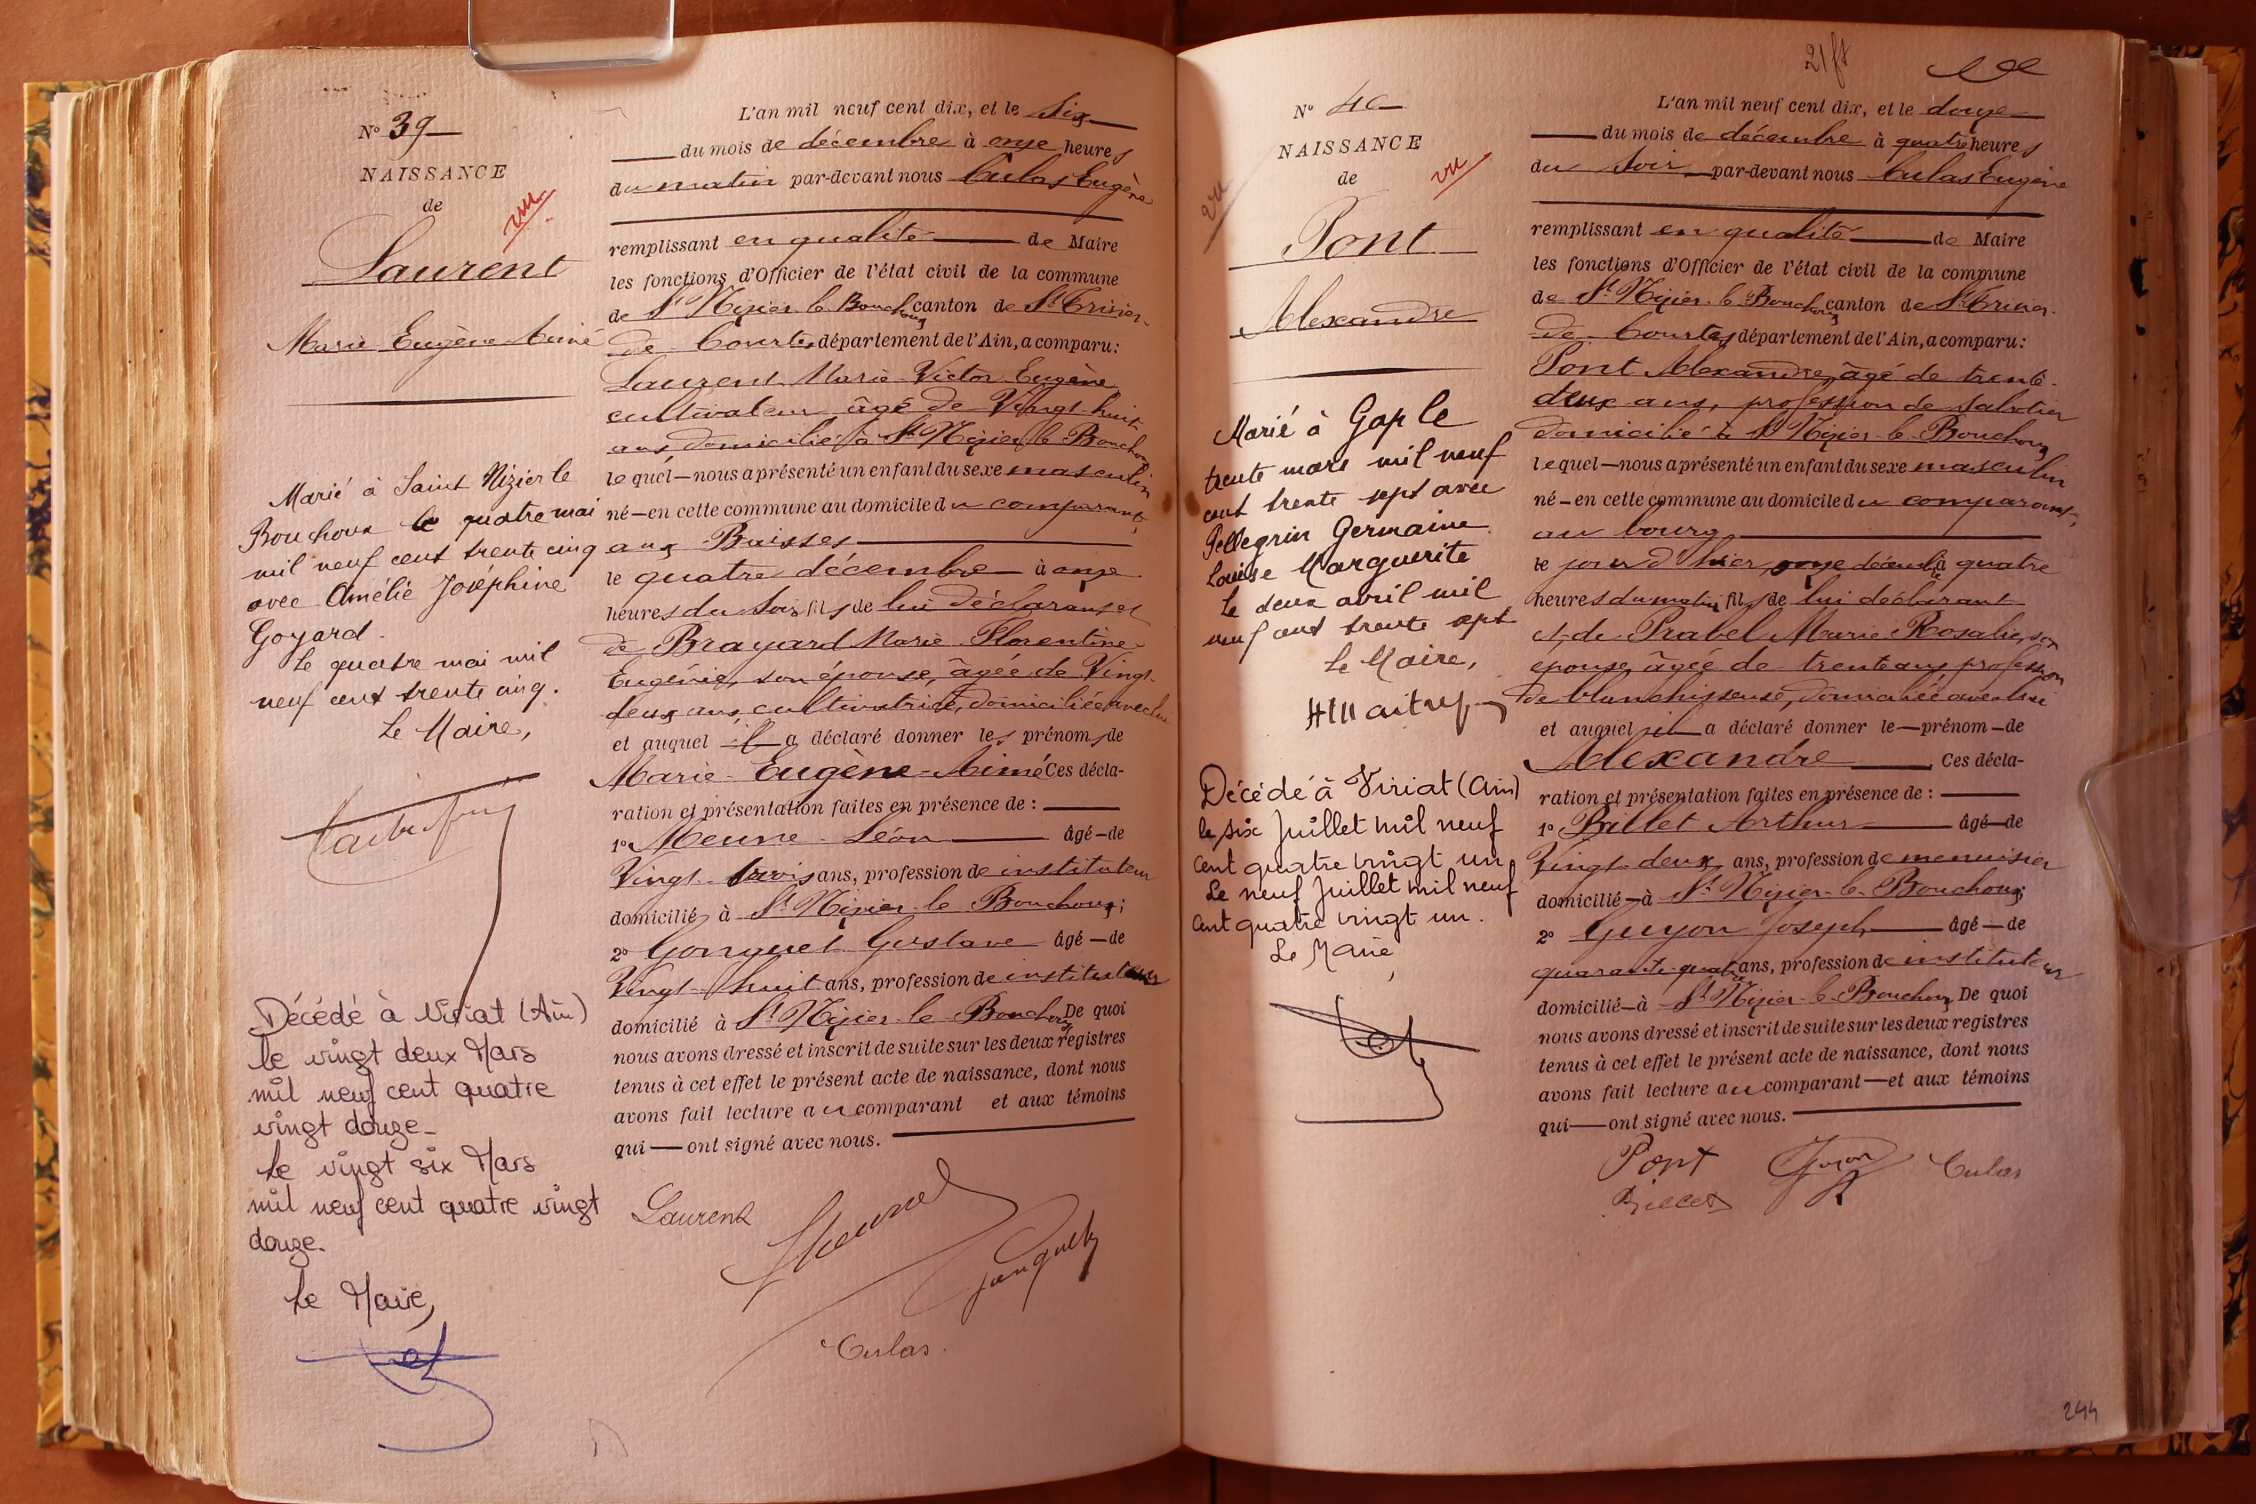 N° 39
NAISSANCE
de
vu
Laurent
Marie Eugène Aimé
Marié à Saint Nizier le
Bouchoux le quatre mai
mil neuf cent trente cinq
avec Amélie Joséphine
Goyard.
Le quatre mai mil
neuf cent trente cinq.
Le Maire,
Décédé à Viriat (Ain)
le vingt deux Mars
mil neuf cent quatre
vingt douze_
Le vingt six Mars
mil neuf cent quatre vingt
douze.
Le Maire,
L'an mil neuf cent dix, et le six
du mois de décembre à onze heures
du matin par-devant nous Culas Eugène
remplissant en qualité de Maire
les fonctions d'Officier de l'état civil de la commune
de St Nizier le Bouchoux canton de St Trivier
de Courtes département de l'Ain, a comparu :
Laurent Marie Victor Eugène
cultivateur âgé de Vingt huit
ans, domicilié à St Nizier le Bouchoux
lequel nous a présenté un enfant du sexe masculin
né en cette commune au domicile du comparant,
aux Baisses
le quatre décembre à onze
heures du soir fils de lui déclarant et
de Brayard Marie Florentine
Eugénie, son épouse, âgée de Vingt
deux ans, cultivatrice, domiciliée avec lui
et auquel il a déclaré donner les prénoms de
Marie Eugène Aimé Ces décla-
ration et présentation faites en présence de :
1° Meune Léon âgé de
Vingt trois ans, profession de instituteur
domicilié à St Nizier le Bouchoux ;
2° Gonguet Gustave âgé de
Vingt huit ans, profession de instituteur
domicilié à St Nizier le Bouchoux De quoi
nous avons dressé et inscrit de suite sur les deux registres
tenus à cet effet le présent acte de naissance, dont nous
avons fait lecture au comparant et aux témoins
qui ont signé avec nous.
Laurent
Culas
21 ft
N° 40
NAISSANCE
de
vu
vu
Pont
Alexandre
Marié à Gap le
trente mars mil neuf
cent trente sept avec
Pellegrin Germaine
Louise Marguerite
Le deux avril mil
neuf cent trente sept
Le Maire,
Décédé à Viriat (Ain)
le six Juillet mil neuf
cent quatre vingt un
Le neuf Juillet mil neuf
cent quatre vingt un.
Le Maire,
L'an mil neuf cent dix, et le douze
du mois de décembre à quatre heures
du soir par-devant nous Culas Eugène
remplissant en qualité de Maire
les fonctions d'Officier de l'état civil de la commune
de St Nizier le Bouchoux canton de St Trivier
de Courtes département de l'Ain, a comparu :
Pont Alexandre, âgé de trente
deux ans, profession de sabotier
domicilié à St Nizier le Bouchoux
lequel nous a présenté un enfant du sexe masculin
né en cette commune au domicile du comparant,
au bourg
le jour d'hier, onze décembre à quatre
heures du matin fils de lui déclarant
et de Prabel Marie Rosalie, son
épouse, âgée de trente ans profession
de blanchisseuse, domiciliée avec lui
et auquel il a déclaré donner le prénom de
Alexandre Ces décla-
ration et présentation faites en présence de :
1° Billet Arthur âgé de
Vingt deux ans, profession de menuisier
domicilié à St Nizier le Bouchoux ;
2° Guyon Joseph âgé de
quarante quatre ans, profession de instituteur
domicilié à St Nizier le Bouchoux De quoi
nous avons dressé et inscrit de suite sur les deux registres
tenus à cet effet le présent acte de naissance, dont nous
avons fait lecture au comparant et aux témoins
qui ont signé avec nous.
Pont Guyon Culas
Billet
244